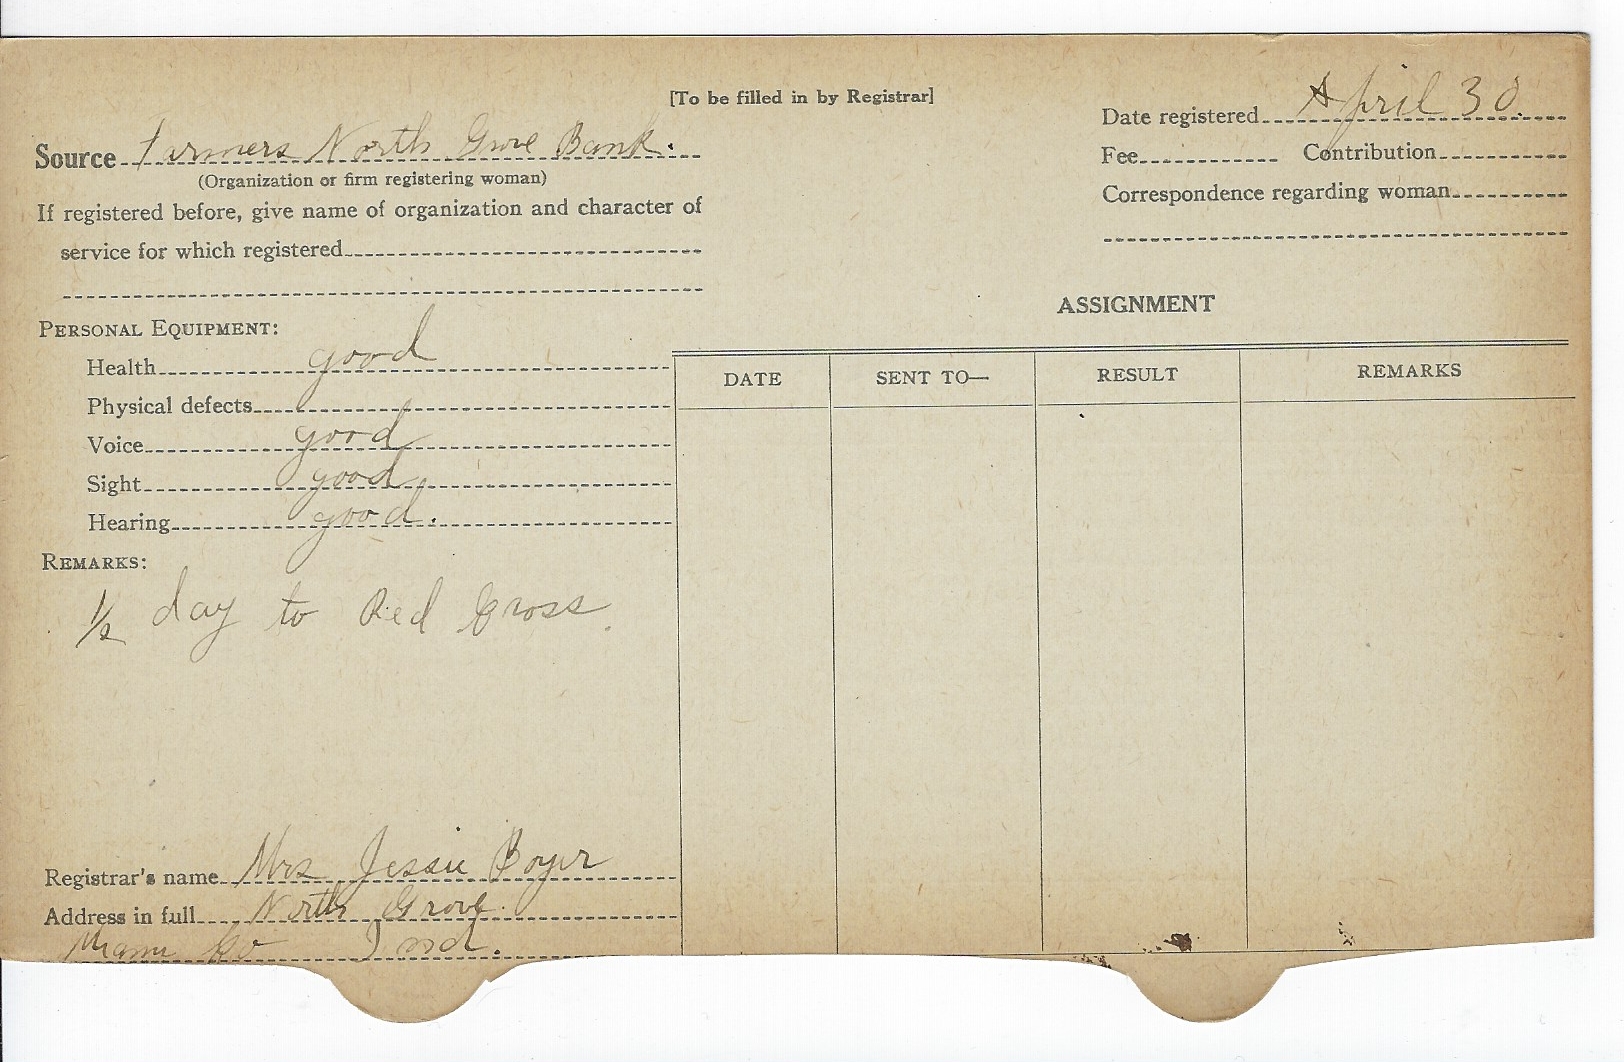 [To be filled in by Registrar]
Date registered April 30
Source Farmers North Grove Bank.
(Organization or firm registering woman)
Fee Contribution
If registered before, give name of organization and character of
service for which registered
Correspondence regarding woman
PERSONAL EQUIPMENT:
Health good
Physical defects
Voice good
Sight good
Hearing good.
REMARKS:
1/2 day to Red Cross.
Registrar's name Mrs Jessie Boyer
Address in full North Grove
Miami Co Ind.
ASSIGNMENT
DATE SENT TO— RESULT REMARKS